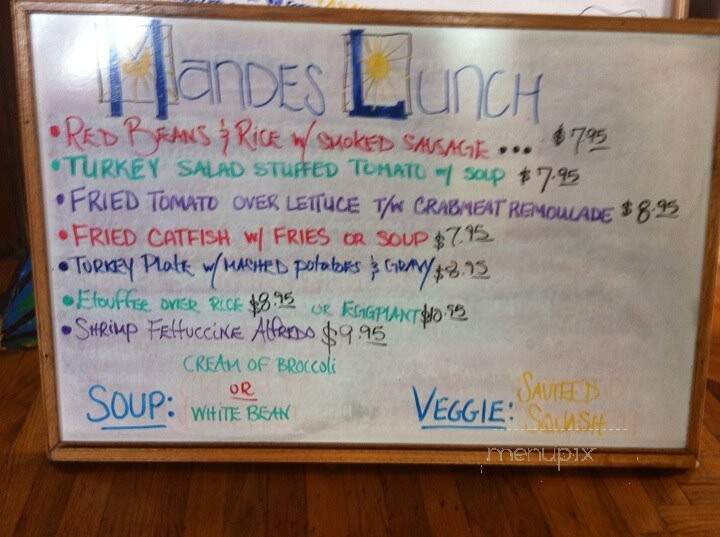 MANDES LUNCH
• RED BEANS & RICE W/ SMOKED SAUSAGE ... $7.95
• TURKEY SALAD STUFFED TOMATO W/ SOUP $7.95
• FRIED TOMATO OVER LETTUCE T/W CRABMEAT REMOULADE $8.95
• FRIED CATFISH W/ FRIES OR SOUP $7.95
• TURKEY Plate W/ MASHED potatoes & GRAVY $8.95
• Etouffee over RICE $8.95 OR EGGPLANT $10.95
• SHRIMP FETTUCCINE Alfredo $9.95
CREAM OF BROCColi
SOUP: OR
WHITE BEAN
VEGGIE: SAUTEED
SQUASH
menupix